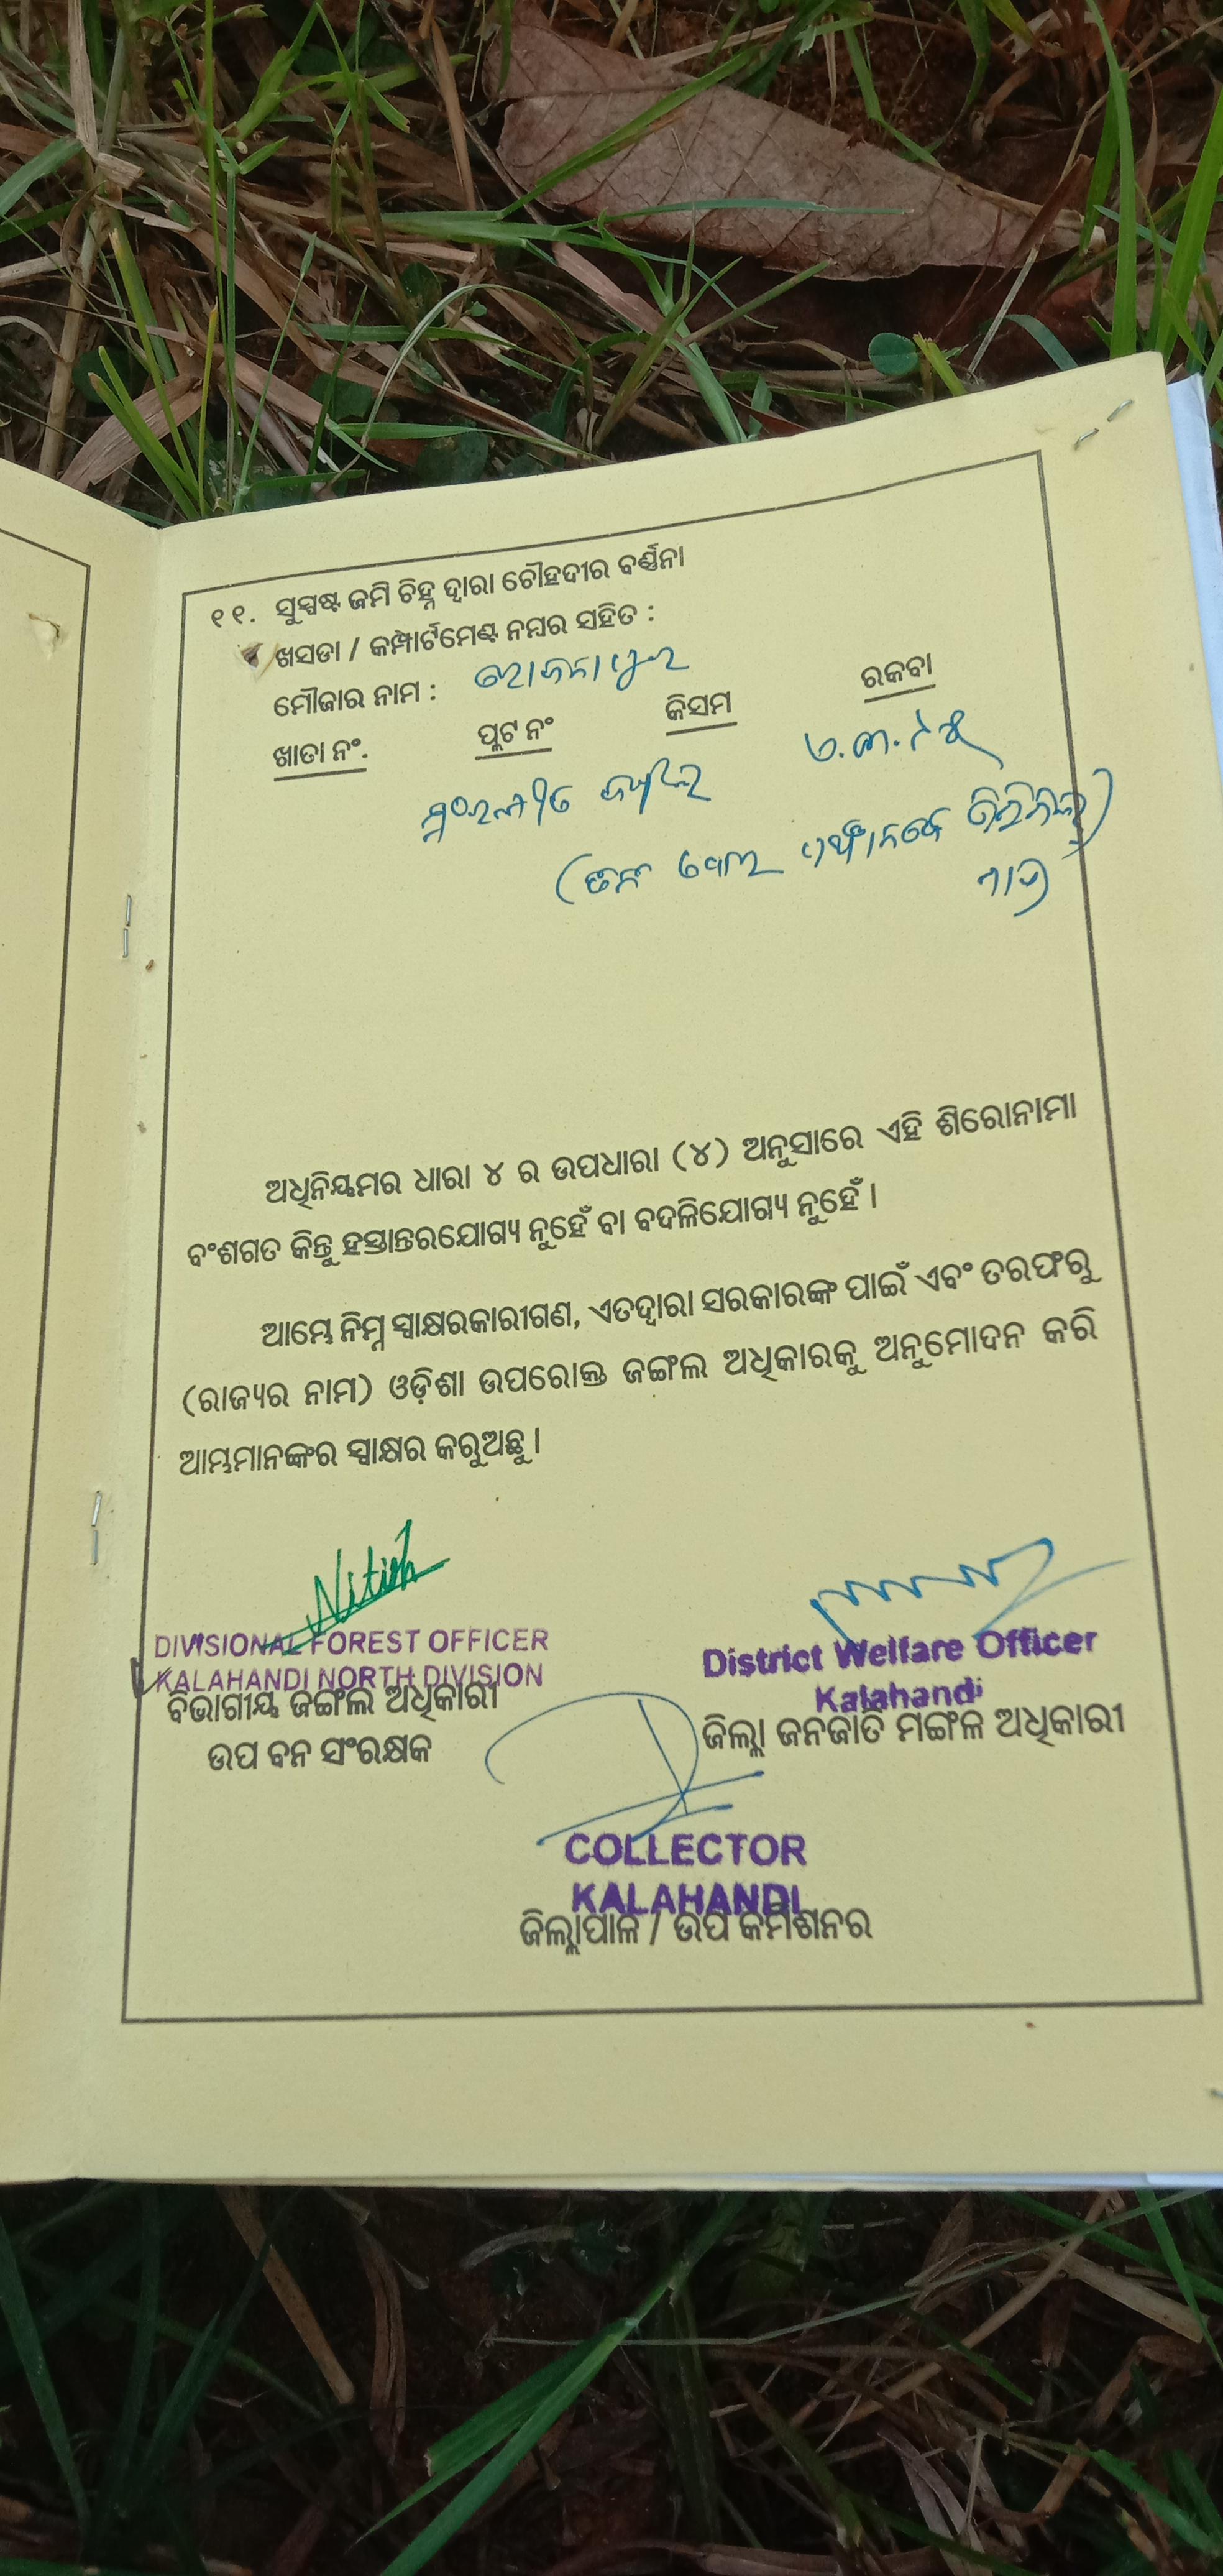 ୧୧. ସୁସ୍ପଷ୍ଟ ଜମି ଚିହ୍ନ ଦ୍ୱାରା ଚୌହଦୀର ବର୍ଣ୍ଣନା
ଖସଡା / କମ୍ପାର୍ଟମେଣ୍ଟ ନମ୍ବର ସହିତ :
ମୌଜାର ନାମ :
ଖାତା ନଂ. ପ୍ଲଟ ନଂ କିସମ ରକବା
ଅଧିନିୟମର ଧାରା ୪ ର ଉପଧାରା (୪) ଅନୁସାରେ ଏହି ଶିରୋନାମା
ବଂଶଗତ କିନ୍ତୁ ହସ୍ତାନ୍ତରଯୋଗ୍ୟ ନୁହେଁ ବା ବଦଳିଯୋଗ୍ୟ ନୁହେଁ ।
ଆମ୍ଭେ ନିମ୍ନ ସ୍ୱାକ୍ଷରକାରୀଗଣ, ଏତଦ୍ୱାରା ସରକାରଙ୍କ ପାଇଁ ଏବଂ ତରଫରୁ
(ରାଜ୍ୟର ନାମ) ଓଡ଼ିଶା ଉପରୋକ୍ତ ଜଙ୍ଗଲ ଅଧିକାରକୁ ଅନୁମୋଦନ କରି
ଆମ୍ଭମାନଙ୍କର ସ୍ୱାକ୍ଷର କରୁଅଛୁ ।
Nitish
DIVISIONAL FOREST OFFICER
KALAHANDI NORTH DIVISION
ବିଭାଗୀୟ ଜଙ୍ଗଲ ଅଧିକାରୀ
ଉପ ବନ ସଂରକ୍ଷକ
District Welfare Officer
Kalahandi
ଜିଲ୍ଲା ଜନଜାତି ମଙ୍ଗଳ ଅଧିକାରୀ
COLLECTOR
KALAHANDI
ଜିଲ୍ଲାପାଳ / ଉପ କମିଶନର